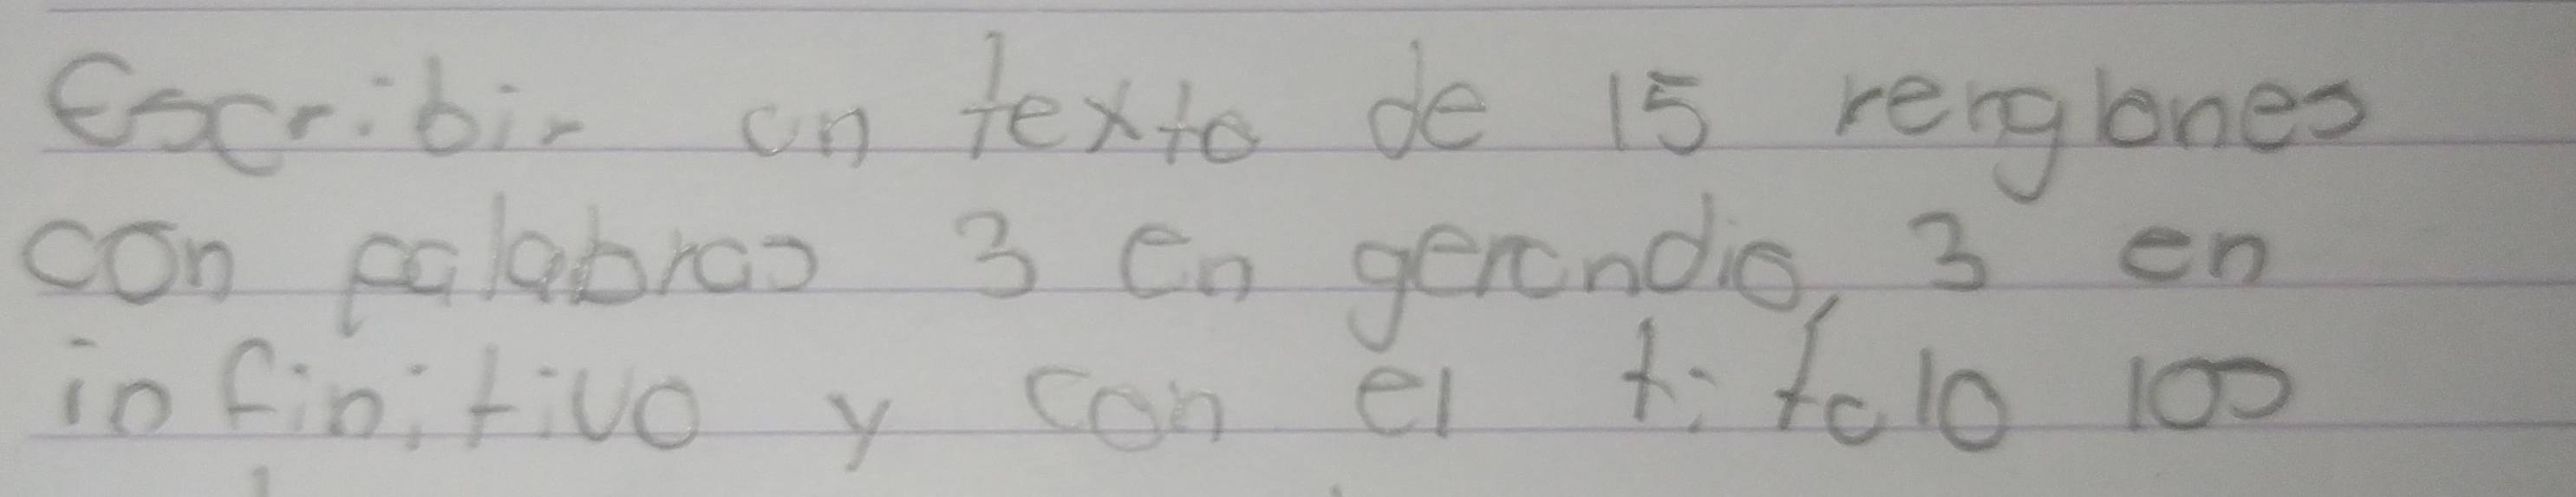 Escribir un texto de 15 renglones
con palabras 3 en gerundio, 3 en
infinitivo y con el titulo 100